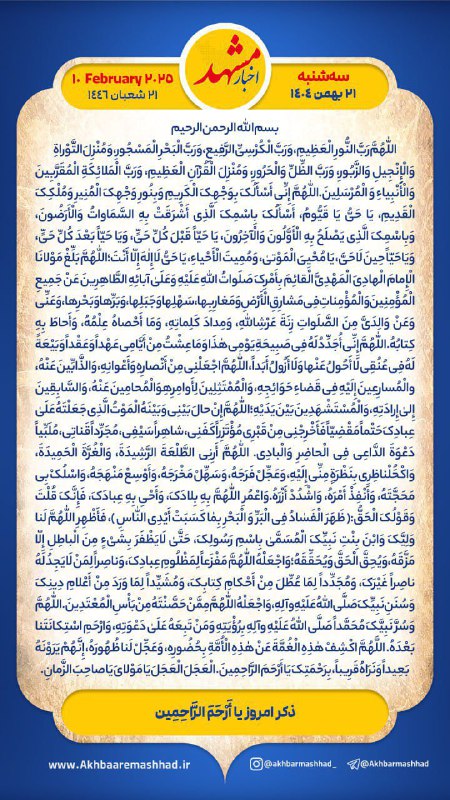 اخبار مشهد
سه‌شنبه
۲۱ بهمن ۱۴۰۴
۱۰ February ۲۰۲۵
۲۱ شعبان ۱۴۴۶
بسم الله الرحمن الرحیم
اللّٰهُمَّ رَبَّ النُّورِ الْعَظِیمِ، وَرَبَّ الْکُرْسِیِّ الرَّفِیعِ، وَرَبَّ الْبَحْرِ الْمَسْجُورِ، وَمُنْزِلَ التَّوْراةِ
وَالْإِنْجِیلِ وَالزَّبُورِ، وَرَبَّ الظِّلِّ وَالْحَرُورِ، وَمُنْزِلَ الْقُرْآنِ الْعَظِیمِ، وَرَبَّ الْمَلائِکَةِ الْمُقَرَّبِینَ
وَالْأَنْبِیاءِ وَ الْمُرْسَلِینَ. اللّٰهُمَّ إِنِّی أَسْأَلُکَ بِوَجْهِکَ الْکَرِیمِ وَبِنُورِ وَجْهِکَ الْمُنِیرِ وَمُلْکِکَ
الْقَدِیمِ، یَا حَیُّ یَا قَیُّومُ، أَسْأَلُکَ بِاسْمِکَ الَّذِی أَشْرَقَتْ بِهِ السَّمَاوَاتُ وَالْأَرَضُونَ،
وَبِاسْمِکَ الَّذِی یَصْلَحُ بِهِ الْأَوَّلُونَ وَالْآخِرُونَ، یَا حَیّاً قَبْلَ کُلِّ حَیٍّ، وَیَا حَیّاً بَعْدَ کُلِّ حَیٍّ،
وَیَا حَیّاً حِینَ لَاحَیَّ، یَا مُحْیِیَ الْمَوْتیٰ، وَمُمِیتَ الْأَحْیاءِ، یَا حَیُّ لَاإِلٰهَ إِلّا أَنْتَ؛ اللّٰهُمَّ بَلِّغْ مَوْلانَا
الْإِمامَ الْهادِیَ الْمَهْدِیَّ الْقائِمَ بِأَمْرِکَ صَلَواتُ اللّٰهِ عَلَیْهِ وَعَلیٰ آبائِهِ الطَّاهِرِینَ عَنْ جَمِیعِ
الْمُؤْمِنِینَ وَالْمُؤْمِناتِ فِی مَشارِقِ الْأَرْضِ وَمَغارِبِها، سَهْلِها وَجَبَلِها، وَبَرِّها وَبَحْرِها، وَعَنِّی
وَعَنْ وَالِدَیَّ مِنَ الصَّلَواتِ زِنَةَ عَرْشِ اللّٰهِ، وَمِدادَ کَلِماتِهِ، وَمَا أَحْصاهُ عِلْمُهُ، وَأَحاطَ بِهِ
کِتابُهُ. اللّٰهُمَّ إِنِّی أُجَدِّدُ لَهُ فِی صَبِیحَةِ یَوْمِی هٰذَا وَمَا عِشْتُ مِنْ أَیَّامِی عَهْداً وَعَقْداً وَبَیْعَةً
لَهُ فِی عُنُقِی لَا أَحُولُ عَنْها وَلَا أَزُولُ أَبَداً، اللّٰهُمَّ اجْعَلْنِی مِنْ أَنْصارِهِ وَأَعْوانِهِ، وَالذَّابِّینَ عَنْهُ،
وَالْمُسارِعِینَ إِلَیْهِ فِی قَضاءِ حَوَائِجِهِ، وَالْمُمْتَثِلِینَ لِأَوامِرِهِ وَالْمُحامِینَ عَنْهُ، وَالسَّابِقِینَ
إِلیٰ إِرادَتِهِ، وَالْمُسْتَشْهَدِینَ بَیْنَ یَدَیْهِ؛ اللّٰهُمَّ إِنْ حالَ بَیْنِی وَبَیْنَهُ الْمَوْتُ الَّذِی جَعَلْتَهُ عَلیٰ
عِبادِکَ حَتْماً مَقْضِیّاً فَأَخْرِجْنِی مِنْ قَبْرِی مُؤْتَزِراً کَفَنِی، شاهِراً سَیْفِی، مُجَرِّداً قَناتِی، مُلَبِّیاً
دَعْوَةَ الدَّاعِی فِی الْحاضِرِ وَالْبادِی. اللّٰهُمَّ أَرِنِی الطَّلْعَةَ الرَّشِیدَةَ، وَالْغُرَّةَ الْحَمِیدَةَ،
وَاکْحُلْ ناظِرِی بِنَظْرَةٍ مِنِّی إِلَیْهِ، وَعَجِّلْ فَرَجَهُ، وَسَهِّلْ مَخْرَجَهُ، وَأَوْسِعْ مَنْهَجَهُ، وَاسْلُکْ بِی
مَحَجَّتَهُ، وَأَنْفِذْ أَمْرَهُ، وَاشْدُدْ أَزْرَهُ. وَاعْمُرِ اللّٰهُمَّ بِهِ بِلادَکَ، وَأَحْیِ بِهِ عِبادَکَ، فَإِنَّکَ قُلْتَ
وَقَوْلُکَ الْحَقُّ: ﴿ظَهَرَ الْفَسَادُ فِی الْبَرِّ وَ الْبَحْرِ بِمَا کَسَبَتْ أَیْدِی النَّاسِ﴾، فَأَظْهِرِ اللّٰهُمَّ لَنا
وَلِیَّکَ وَابْنَ بِنْتِ نَبِیِّکَ الْمُسَمَّیٰ بِاسْمِ رَسُولِکَ، حَتَّیٰ لَا یَظْفَرَ بِشَیْءٍ مِنَ الْباطِلِ إِلّا
مَزَّقَهُ، وَیُحِقَّ الْحَقَّ وَیُحَقِّقَهُ؛ وَاجْعَلْهُ اللّٰهُمَّ مَفْزَعاً لِمَظْلُومِ عِبادِکَ، وَناصِراً لِمَنْ لَا یَجِدُ لَهُ
ناصِراً غَیْرَکَ، وَمُجَدِّداً لِمَا عُطِّلَ مِنْ أَحْکامِ کِتابِکَ، وَمُشَیِّداً لِمَا وَرَدَ مِنْ أَعْلامِ دِینِکَ
وَسُنَنِ نَبِیِّکَ صَلَّی اللّٰهُ عَلَیْهِ وَآلِهِ، وَاجْعَلْهُ اللّٰهُمَّ مِمَّنْ حَصَّنْتَهُ مِنْ بَأْسِ الْمُعْتَدِینَ. اللّٰهُمَّ
وَسُرَّ نَبِیَّکَ مُحَمَّداً صَلَّی اللّٰهُ عَلَیْهِ وَآلِهِ بِرُؤْیَتِهِ وَمَنْ تَبِعَهُ عَلیٰ دَعْوَتِهِ، وَارْحَمِ اسْتِکانَتَنا
بَعْدَهُ. اللّٰهُمَّ اکْشِفْ هٰذِهِ الْغُمَّةَ عَنْ هٰذِهِ الْأُمَّةِ بِحُضُورِهِ، وَعَجِّلْ لَنا ظُهُورَهُ، إِنَّهُمْ یَرَوْنَهُ
بَعِیداً وَنَرَاهُ قَرِیباً، بِرَحْمَتِکَ یَا أَرْحَمَ الرَّاحِمِینَ. الْعَجَلَ الْعَجَلَ یَا مَوْلایَ یَا صاحِبَ الزَّمانِ.
ذکر امروز یا أَرْحَمَ الرَّاحِمِین
www.Akhbaaremashhad.ir
@akhbarmashhad_
@Akhbarmashhad